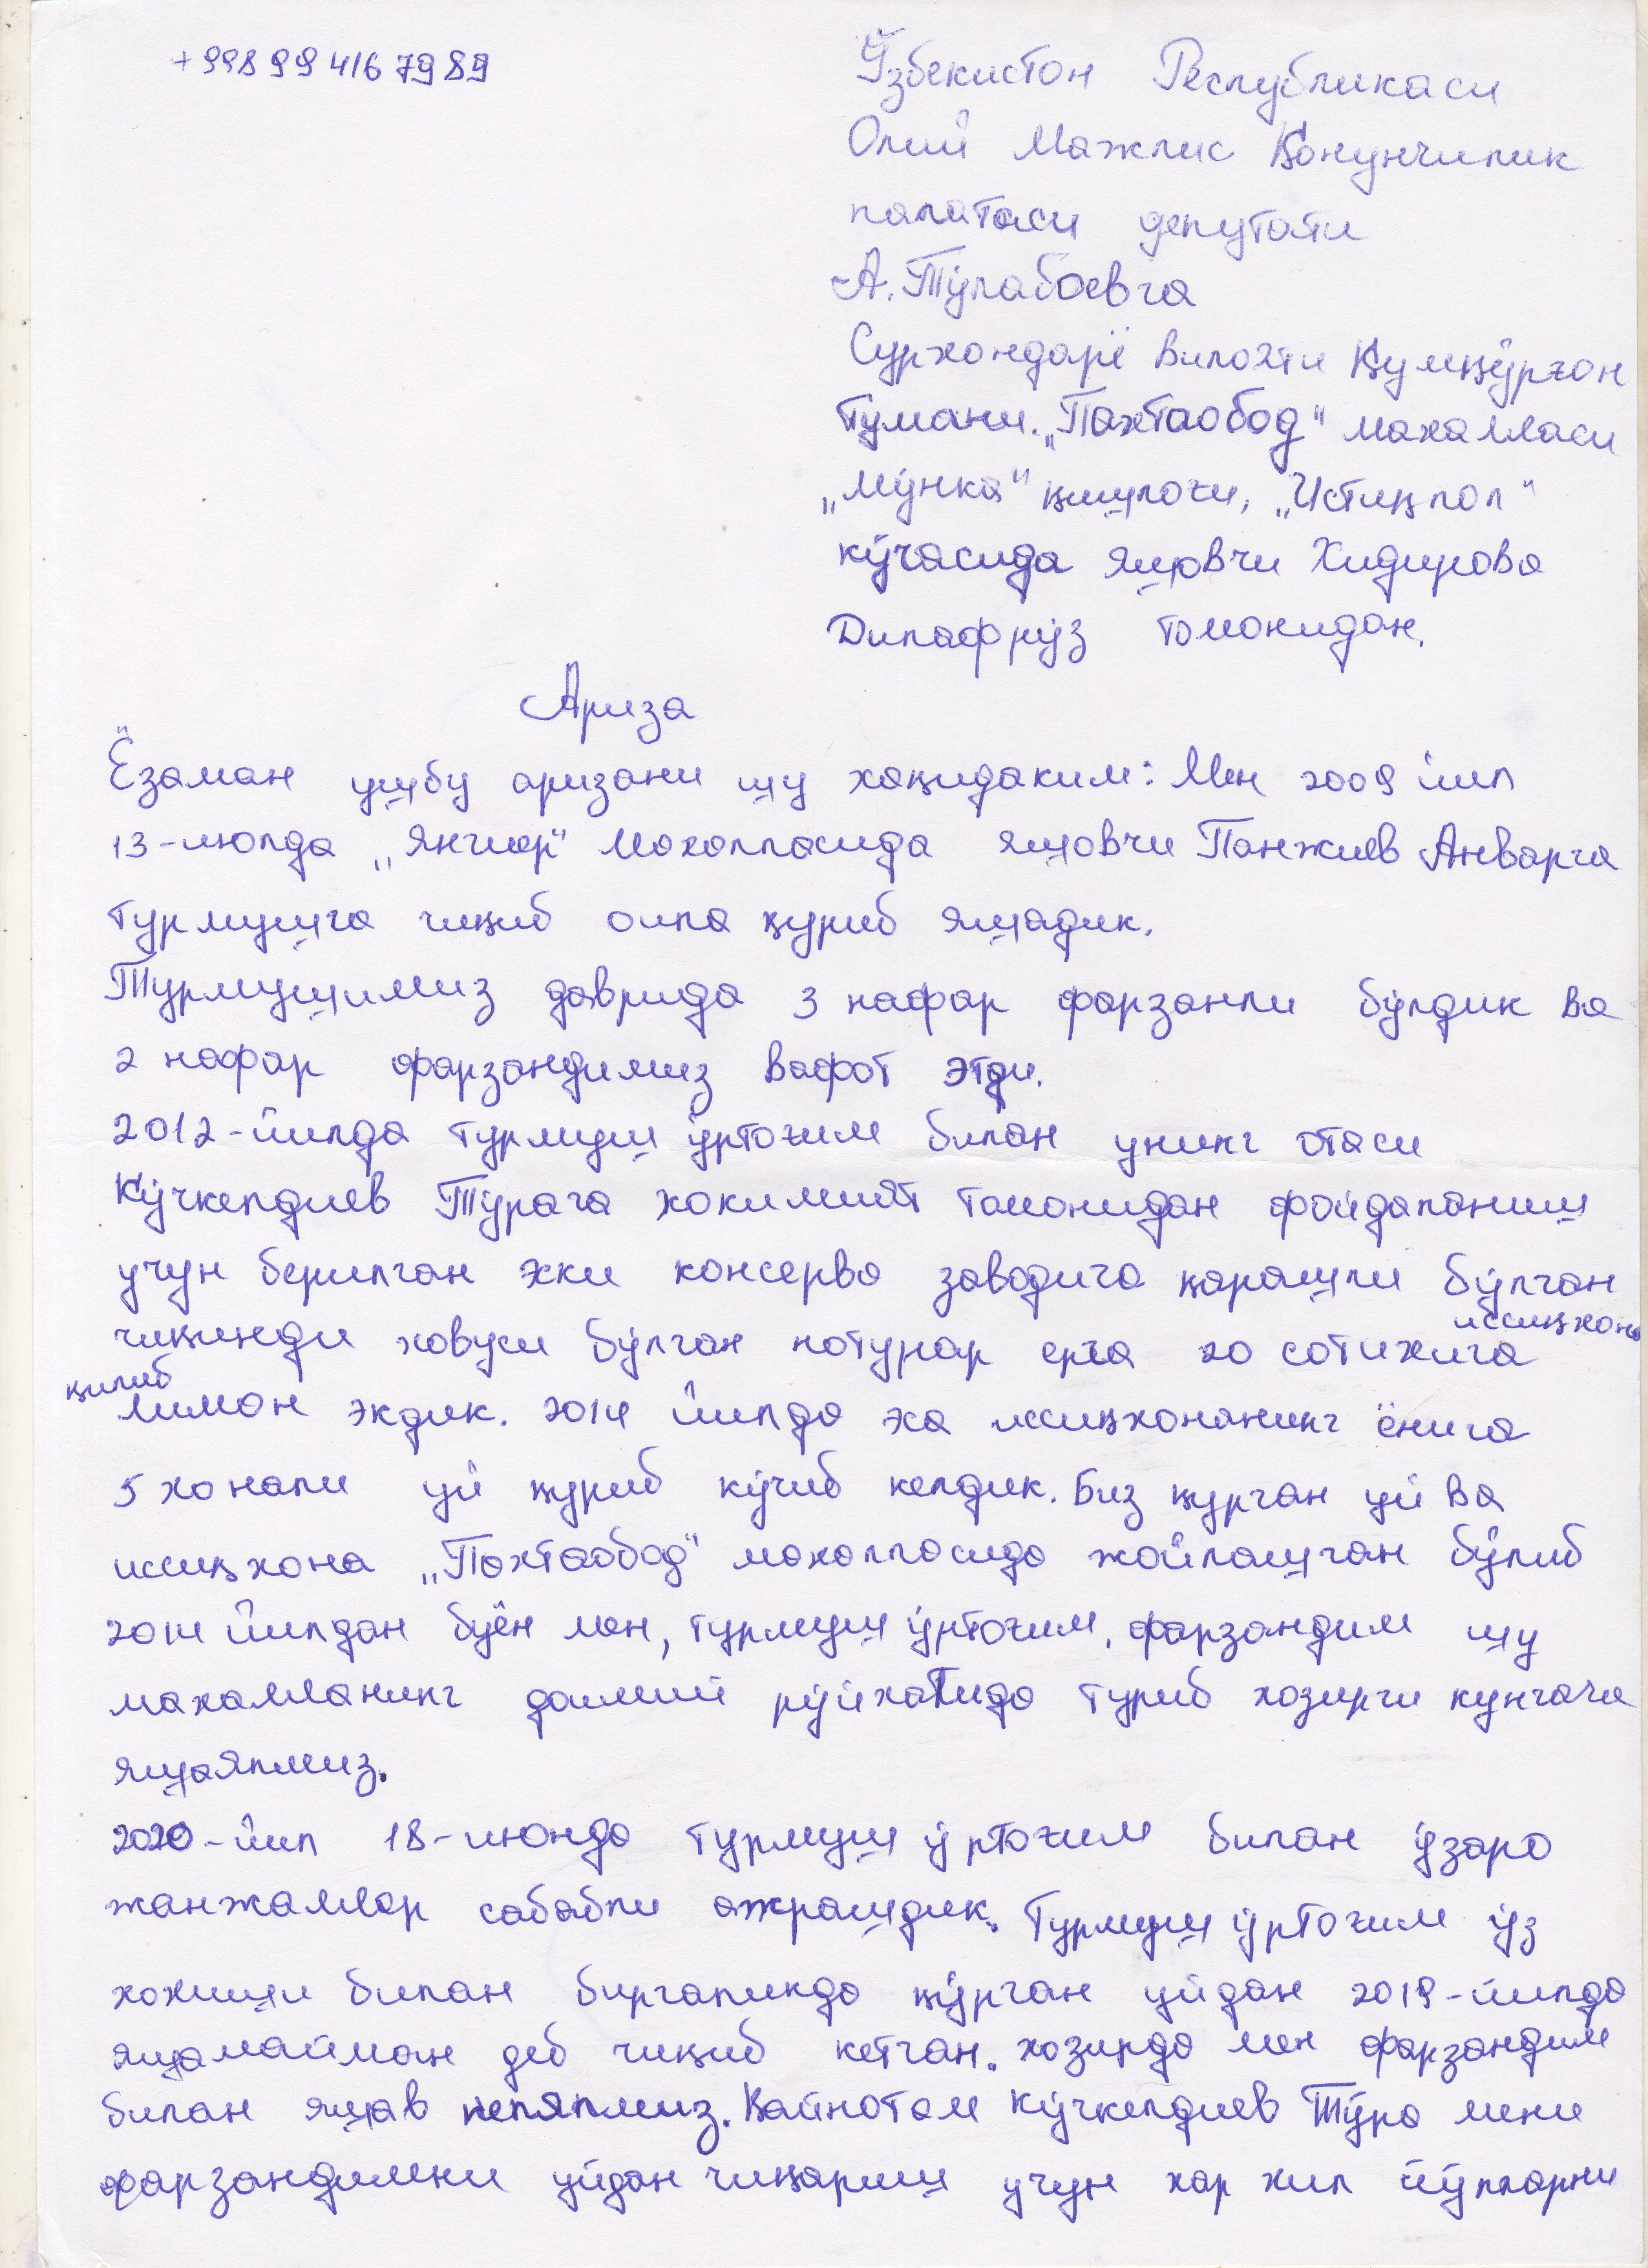 +998 99 416 79 89
Ўзбекистон Республикаси
Олий Мажлис Қонунчилик
палатаси депутати
А.Тўлабоевга
Сурхондарё вилояти Қумқўрғон
тумани. „Пахтаобод" махалласи
„Мўнка" қишлоғи, „Истиқлол"
кўчасида яшовчи Хидирова
Дилафрўз томонидан.
Ариза
Ёзаман ушбу аризани шу хақидаким: Мен 2009 йил
13-июлда „Янгиер" махалласида яшовчи Панжиев Анварга
турмушга чиқиб оила қуриб яшадик.
Турмушимиз даврида 3 нафар фарзанли бўлдик ва
2 нафар фарзандимиз вафот этди.
2012-йилда турмуш ўртоғим билан унинг отаси
Кўчкелдиев Тўрага хокимият томонидан фойдаланиш
учун берилган эски консерва заводига қарашли бўлган
чиқинди ховуси бўлган нотурар ерга 20 сотихига иссиқхона
қилиб лимон экдик. 2014 йилда эса иссиқхонанинг ёнига
5 хонали уй қуриб кўчиб келдик. Биз қурган уй ва
иссиқхона „Пахтаобод" махалласида жойлашган бўлиб
2014 йилдан буён мен, турмуш ўртоғим, фарзандим шу
махалланинг доимий рўйхатида туриб хозирги кунгача
яшаяпмиз.
2020-йил 18-июнда турмуш ўртоғим билан ўзаро
жанжаллар сабабли ажрашдик. Турмуш ўртоғим ўз
хохиши билан биргаликда қўрган уйдан 2019-йилда
яшамайман деб чиқиб кетган. хозирда мен фарзандим
билан яшав келяпмиз. Қайнотам Кўчкелдиев Тўра мени
фарзандимни уйдан чиқариш учун хар хил йўлларни